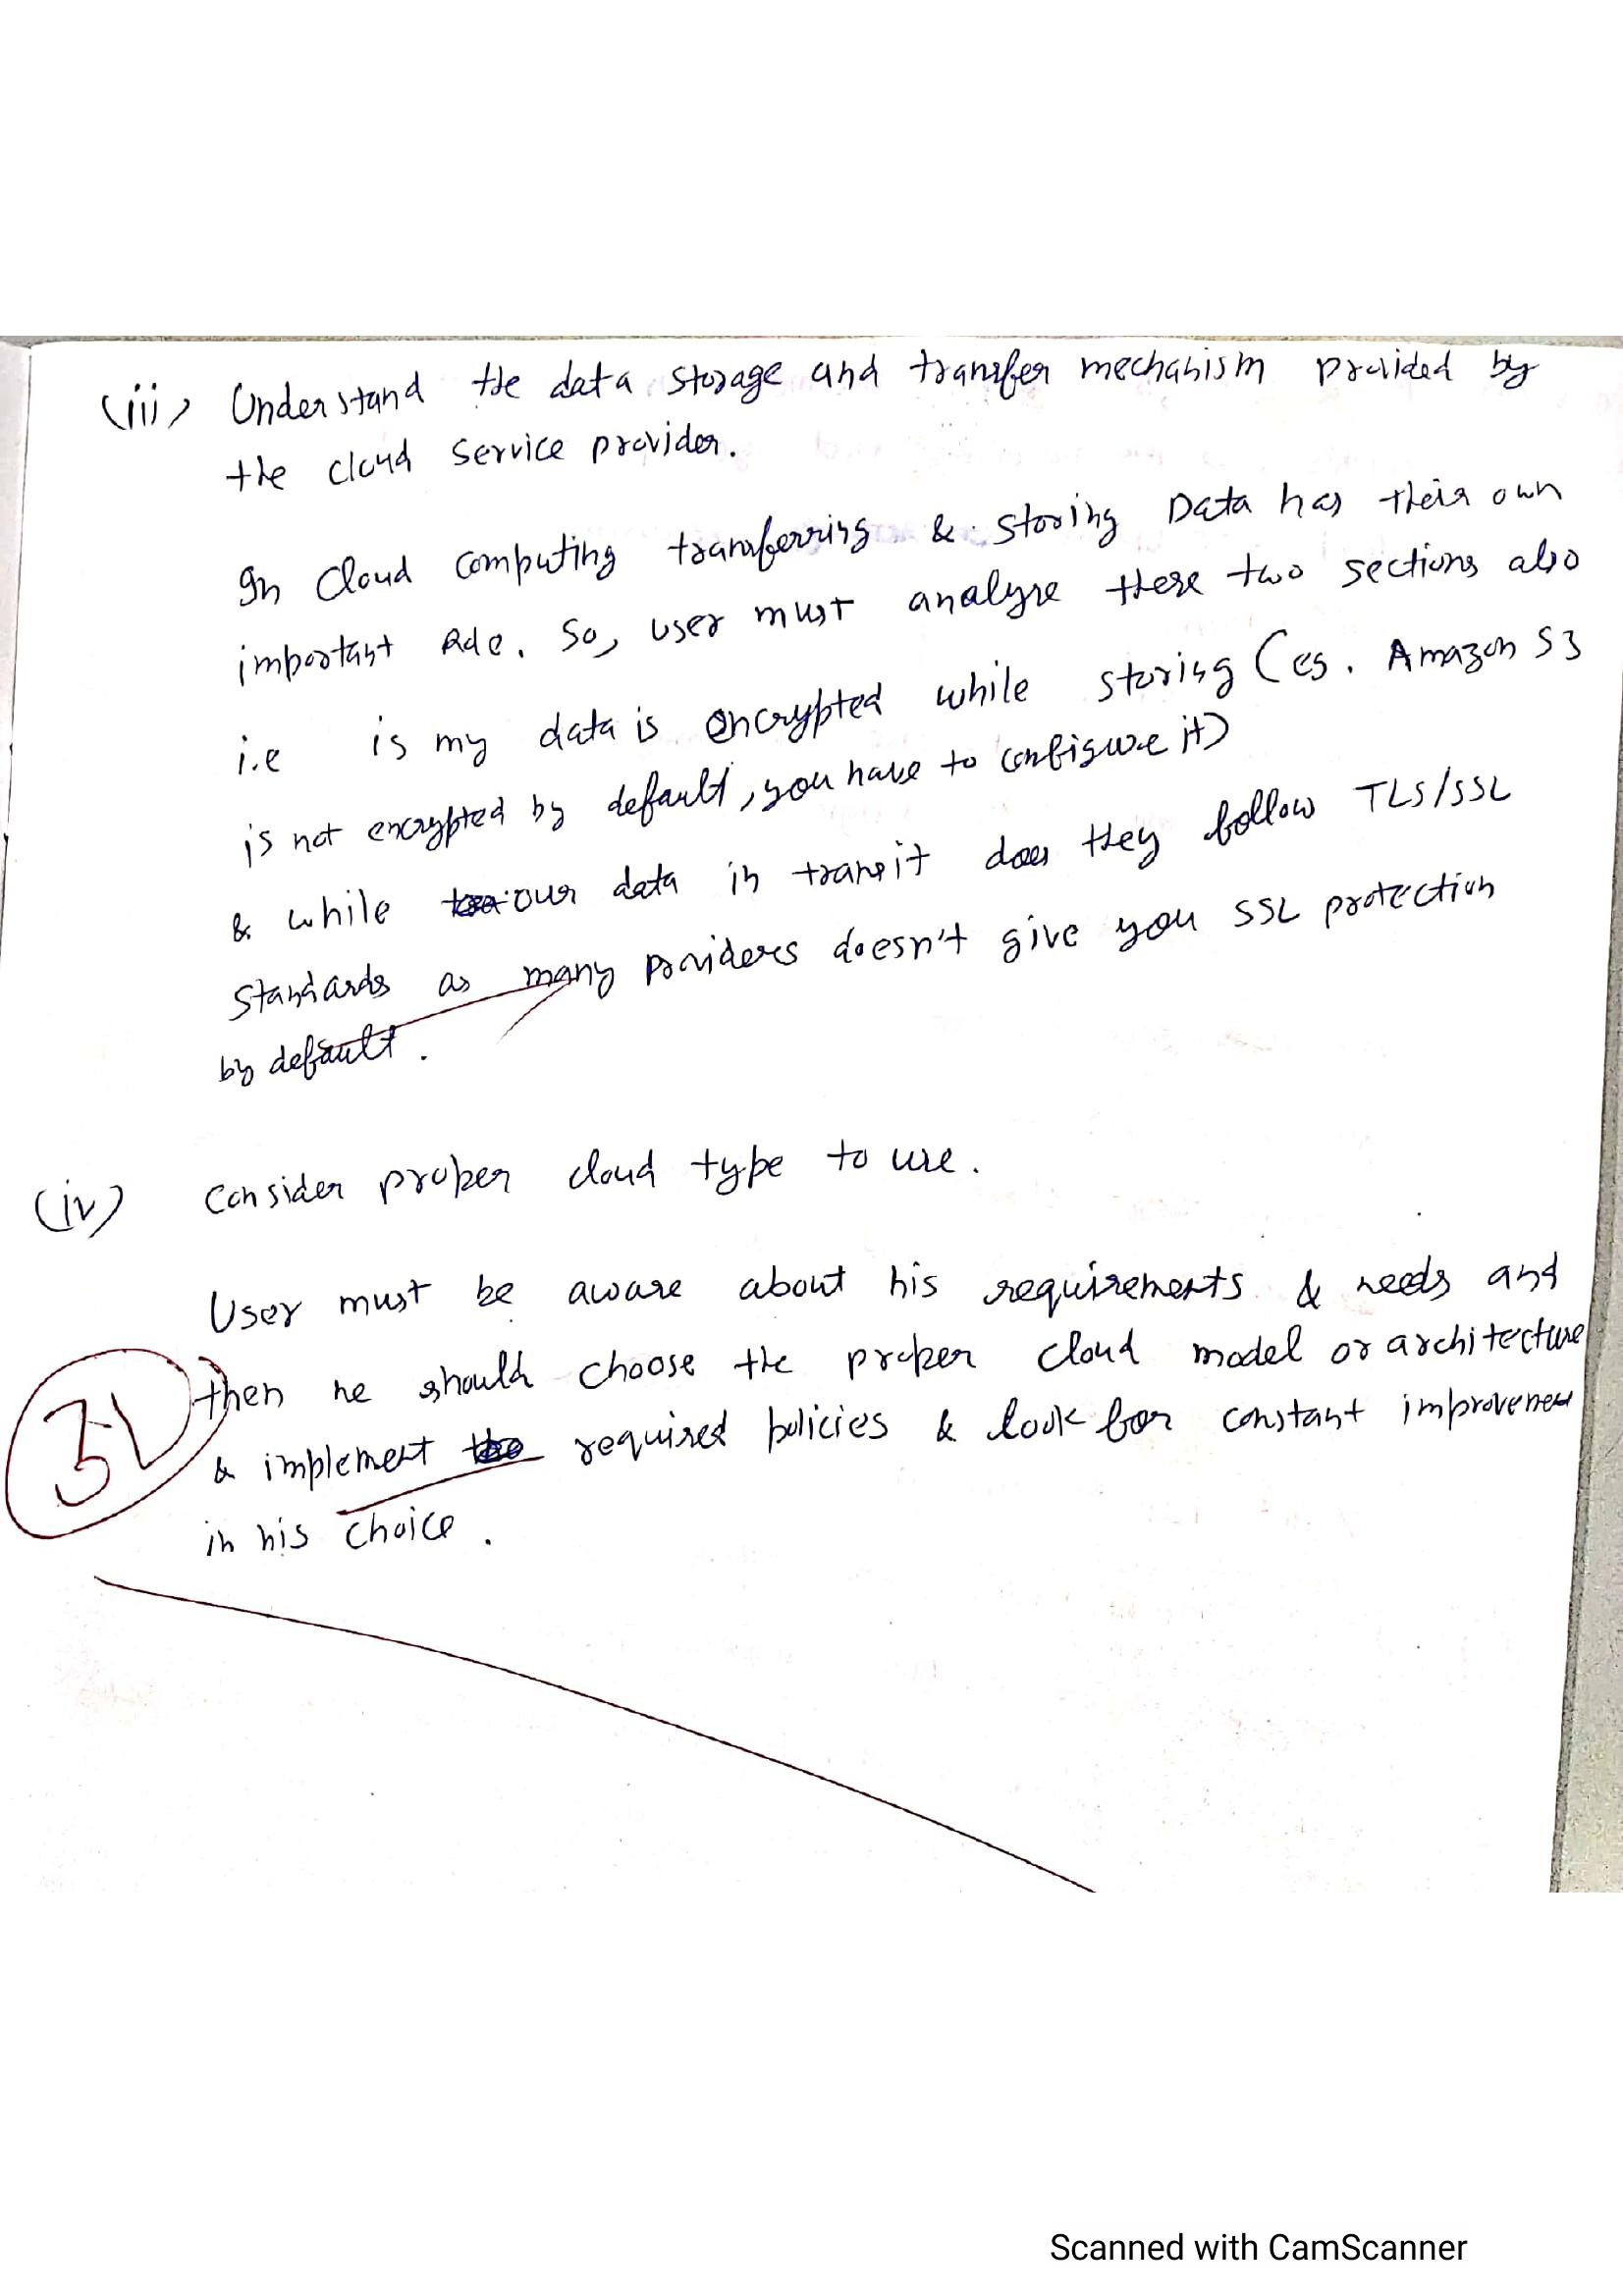 (iii) Understand the data storage and transfer mechanism provided by
the cloud service provider.
In Cloud computing transferring & storing Data has their own
important Role. So, user must analyse these two sections also
i.e is my data is encrypted while storing (eg. Amazon S3
is not encrypted by default, you have to configure it)
& while our data in transit does they follow TLS/SSL
Standards as many providers doesn't give you SSL protection
by default.
(iv) Consider proper cloud type to use.
User must be aware about his requirements & needs and
then he should choose the proper cloud model or architecture
& implement required policies & look for constant improvement
in his choice.
Scanned with CamScanner